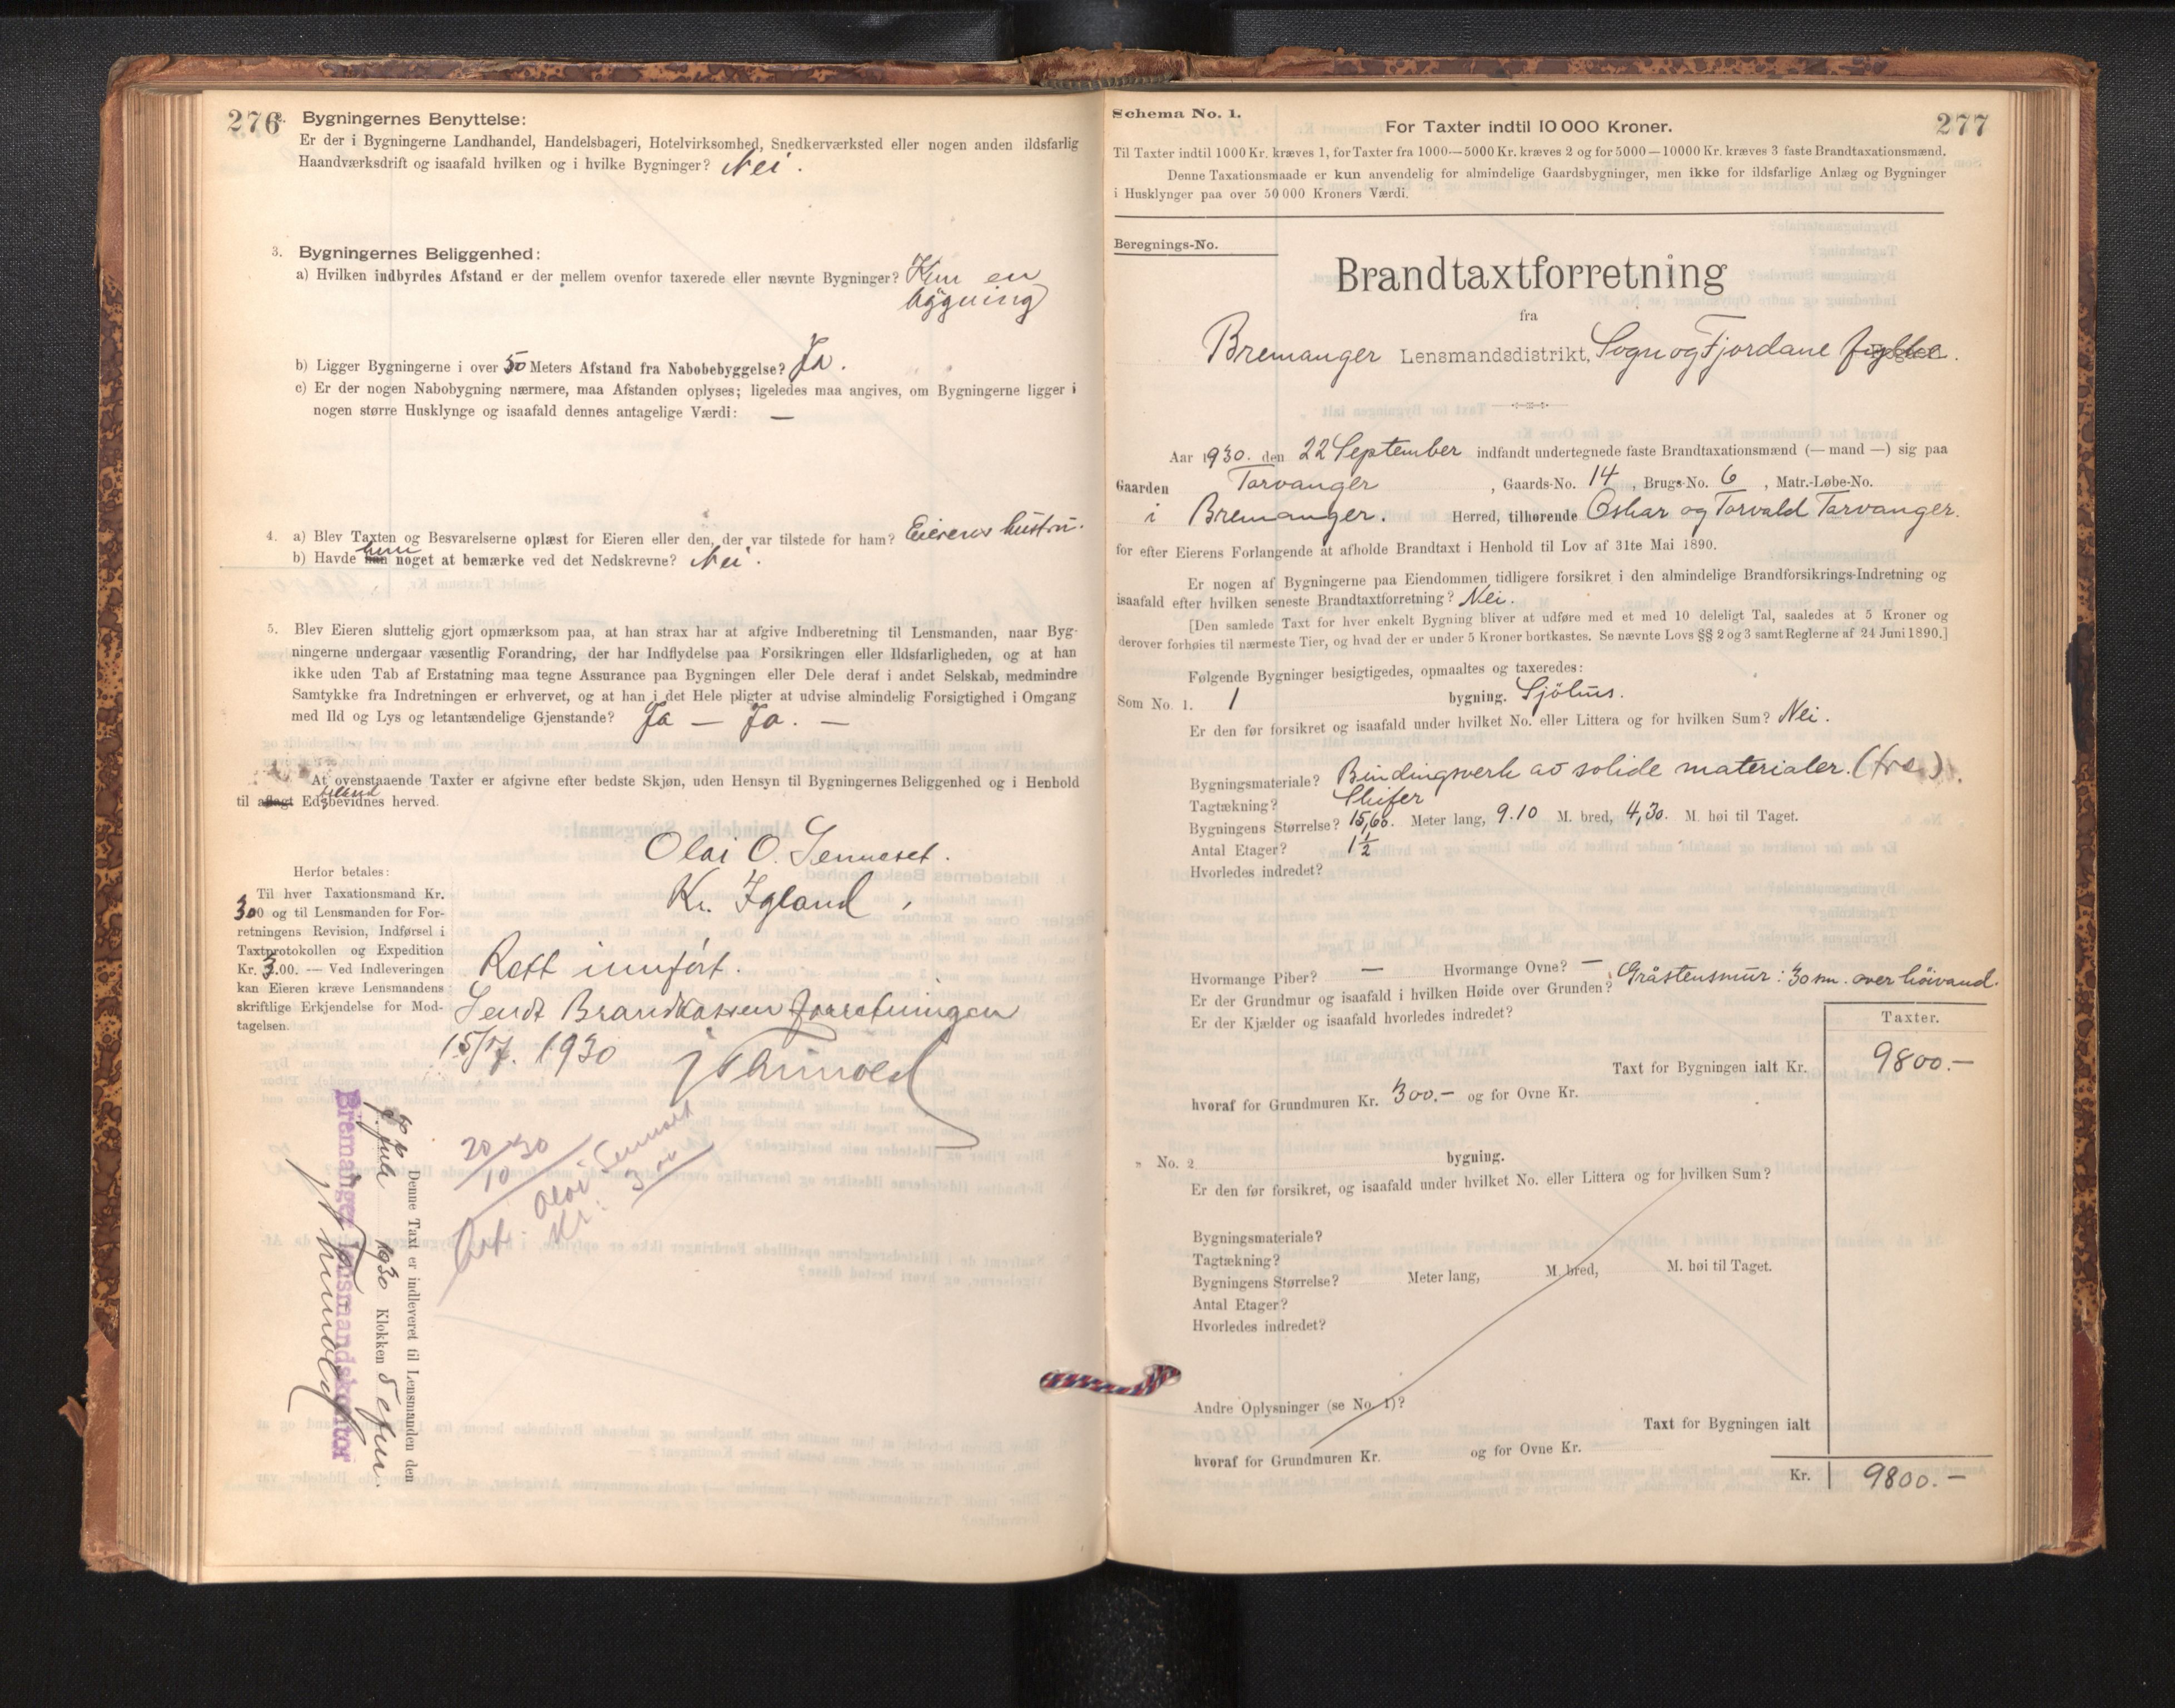 276
2. Bygningernes Benyttelse:
Er der i Bygningerne Landhandel, Handelsbageri, Hotelvirksomhed, Snedkerværksted eller nogen anden ildsfarlig
Haandværksdrift og isaafald hvilken og i hvilke Bygninger? Nei.
3. Bygningernes Beliggenhed:
a) Hvilken indbyrdes Afstand er der mellem ovenfor taxerede eller nævnte Bygninger? Kun en
bygning
b) Ligger Bygningerne i over 50 Meters Afstand fra Nabobebyggelse? Ja.
c) Er der nogen Nabobygning nærmere, maa Afstanden oplyses; ligeledes maa angives, om Bygningerne ligger i
nogen større Husklynge og isaafald dennes antagelige Værdi: —
4. a) Blev Taxten og Besvarelserne oplæst for Eieren eller den, der var tilstede for ham? Eierens hustru.
hun
b) Havde han noget at bemærke ved det Nedskrevne? Nei.
5. Blev Eieren sluttelig gjort opmærksom paa, at han strax har at afgive Indberetning til Lensmanden, naar Byg-
ningerne undergaar væsentlig Forandring, der har Indflydelse paa Forsikringen eller Ildsfarligheden, og at han
ikke uden Tab af Erstatning maa tegne Assurance paa Bygningen eller Dele deraf i andet Selskab, medmindre
Samtykke fra Indretningen er erhvervet, og at han i det Hele pligter at udvise almindelig Forsigtighed i Omgang
med Ild og Lys og letantændelige Gjenstande? Ja — Ja. —
At ovenstaaende Taxter er afgivne efter bedste Skjøn, uden Hensyn til Bygningernes Beliggenhed og i Henhold
til aflagt Ed, bevidnes herved.
Olai O. Senneset.
Kr. Igland,
Herfor betales:
Til hver Taxationsmand Kr.
3.00 og til Lensmanden for For-
retningens Revision, Indførsel i
Taxtprotokollen og Expedition
Kr. 3.00. — Ved Indleveringen
kan Eieren kræve Lensmandens
skriftlige Erkjendelse for Mod-
tagelsen.
Rett innført.
Sendt Brandkassen forretningen
15/7. 1930
20/10 30
Olai Senneset
Kr. 3 00
Denne Taxt er indleveret til Lensmanden den
juli 1930 Klokken 5 efm.
Bremanger lensmandskontor
277
Schema No. 1.
For Taxter indtil 10 000 Kroner.
Til Taxter indtil 1000 Kr. kræves 1, for Taxter fra 1000—5000 Kr. kræves 2 og for 5000—10000 Kr. kræves 3 faste Brandtaxationsmænd.
Denne Taxationsmaade er kun anvendelig for almindelige Gaardsbygninger, men ikke for ildsfarlige Anlæg og Bygninger
i Husklynger paa over 50 000 Kroners Værdi.
Beregnings-No.
Brandtaxtforretning
fra
Bremanger Lensmandsdistrikt, Sogn og Fjordane fylke.
Aar 1930. den 22 September indfandt undertegnede faste Brandtaxationsmænd (— mand —) sig paa
Gaarden Torvanger, Gaards-No. 14, Brugs-No. 6, Matr.-Løbe-No.
i Bremanger. Herred, tilhørende Oskar og Torvald Torvanger.
for efter Eierens Forlangende at afholde Brandtaxt i Henhold til Lov af 31te Mai 1890.
Er nogen af Bygningerne paa Eiendommen tidligere forsikret i den almindelige Brandforsikrings-Indretning og
isaafald efter hvilken seneste Brandtaxtforretning? Nei.
[Den samlede Taxt for hver enkelt Bygning bliver at udføre med et med 10 deleligt Tal, saaledes at 5 Kroner og
derover forhøies til nærmeste Tier, og hvad der er under 5 Kroner bortkastes. Se nævnte Lovs §§ 2 og 3 samt Reglerne af 24 Juni 1890.]
Følgende Bygninger besigtigedes, opmaaltes og taxeredes:
Som No. 1. 1 bygning. Sjöhus.
Er den før forsikret og isaafald under hvilket No. eller Littera og for hvilken Sum? Nei.
Bygningsmateriale? Bindingsverk av solide materialer. (tre).
Tagtækning? Skifer
Bygningens Størrelse? 15,60. Meter lang, 9.10 M. bred, 4,30. M. høi til Taget.
Antal Etager? 1½
Hvorledes indredet?
Hvormange Piber? — Hvormange Ovne? —
Er der Grundmur og isaafald i hvilken Høide over Grunden? Gråstensmur: 30 sm. over höivand.
Er der Kjælder og isaafald hvorledes indredet?
Taxter.
Taxt for Bygningen ialt Kr. 9800.—
hvoraf for Grundmuren Kr. 300.— og for Ovne Kr.
„ No. 2 bygning.
Er den før forsikret, og isaafald under hvilket No. eller Littera og for hvilken Sum?
Bygningsmateriale?
Tagtækning?
Bygningens Størrelse? Meter lang, M. bred, M. høi til Taget.
Antal Etager?
Hvorledes indredet?
Andre Oplysninger (se No. 1)?
Taxt for Bygningen ialt
hvoraf for Grundmuren Kr. og for Ovne Kr.
Kr. 9800.—